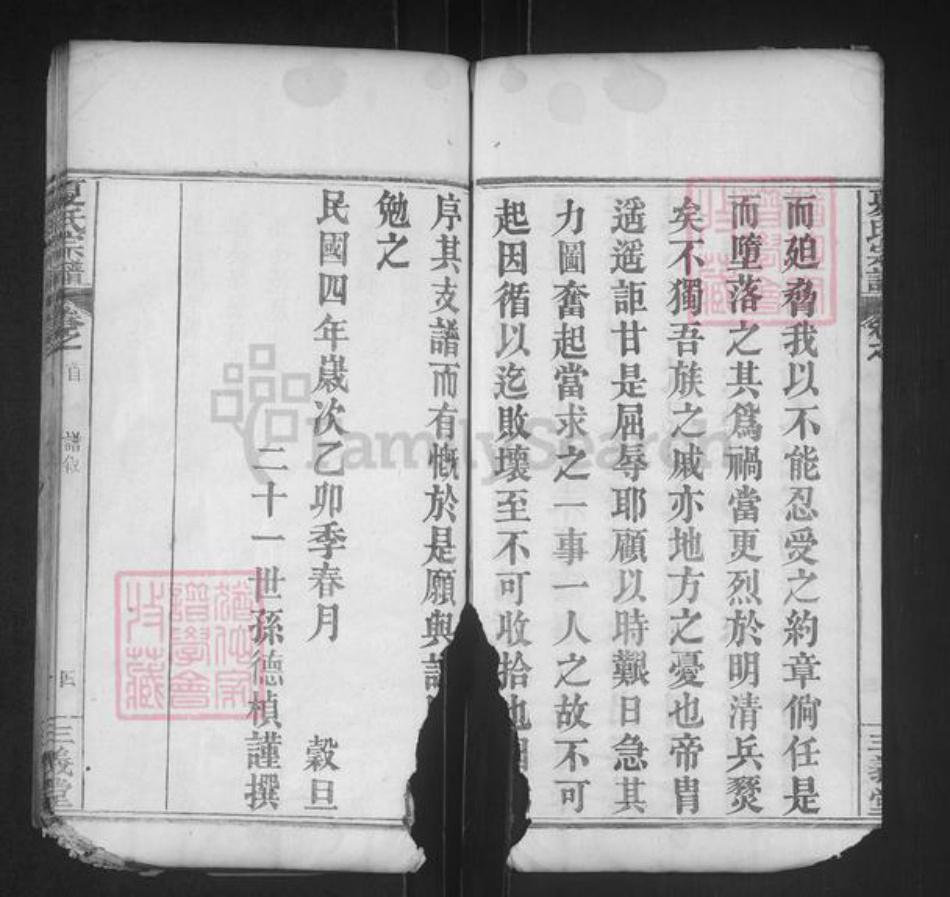 而廹脅我以不能忍受之約章倘任是
而墮落之其爲禍當更烈於明清兵燹
矣不獨吾族之戚亦地方之憂也帝胄
遥遥詎甘是屈辱耶顧以時艱日急其
力圖奮起當求之一事一人之故不可
起因循以迄敗壞至不可收拾也
序其支譜而有慨於是願與
勉之
民國四年歲次乙卯季春月 穀旦
二十一世孫德楨謹撰
夏氏宗譜 卷之 首 譜敘 四 三義堂
FamilySearch